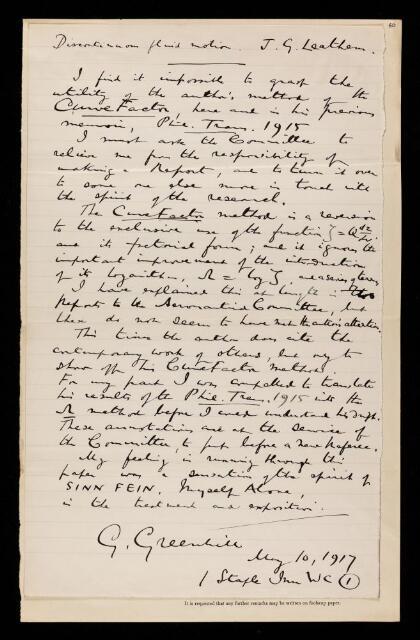 60
Discontinuous fluid motion. J. G. Leathem.
I find it impossible to grasp the
utility of the author's method of the
Curve Factor, here and in his previous
memoir, Phil. Trans. 1915
I must ask the Committee to
relieve me from the responsibility of
making a Report, and to turn it over
to some one else more in touch with
the spirit of the research.
The Curve Factor method is a reversion
to the exclusive use of the function ζ = Q
and its factorial form; and it ignores the
important improvement of the introduction
of its logarithm, Ω = log ζ
I have explained this at length in
Reports to the Aeronautical Committee, but
these do not seem to have met the author's attention.
This time the author does cite the
contemporary work of others, but only to
show off his Curve Factor method.
For my part I was compelled to translate
his results of the Phil. Trans. 1915 into the
Ω method before I could understand his
These annotations are at the service of
the Committee, to put before a new Referee.
My feeling in running through this
paper was a sensation of the spirit of
SINN FEIN, Myself Alone,
in the treatment and exposition.
G. Greenhill
May 10, 1917
1 Staple Inn WC (1)
It is requested that any further remarks may be written on foolscap paper.